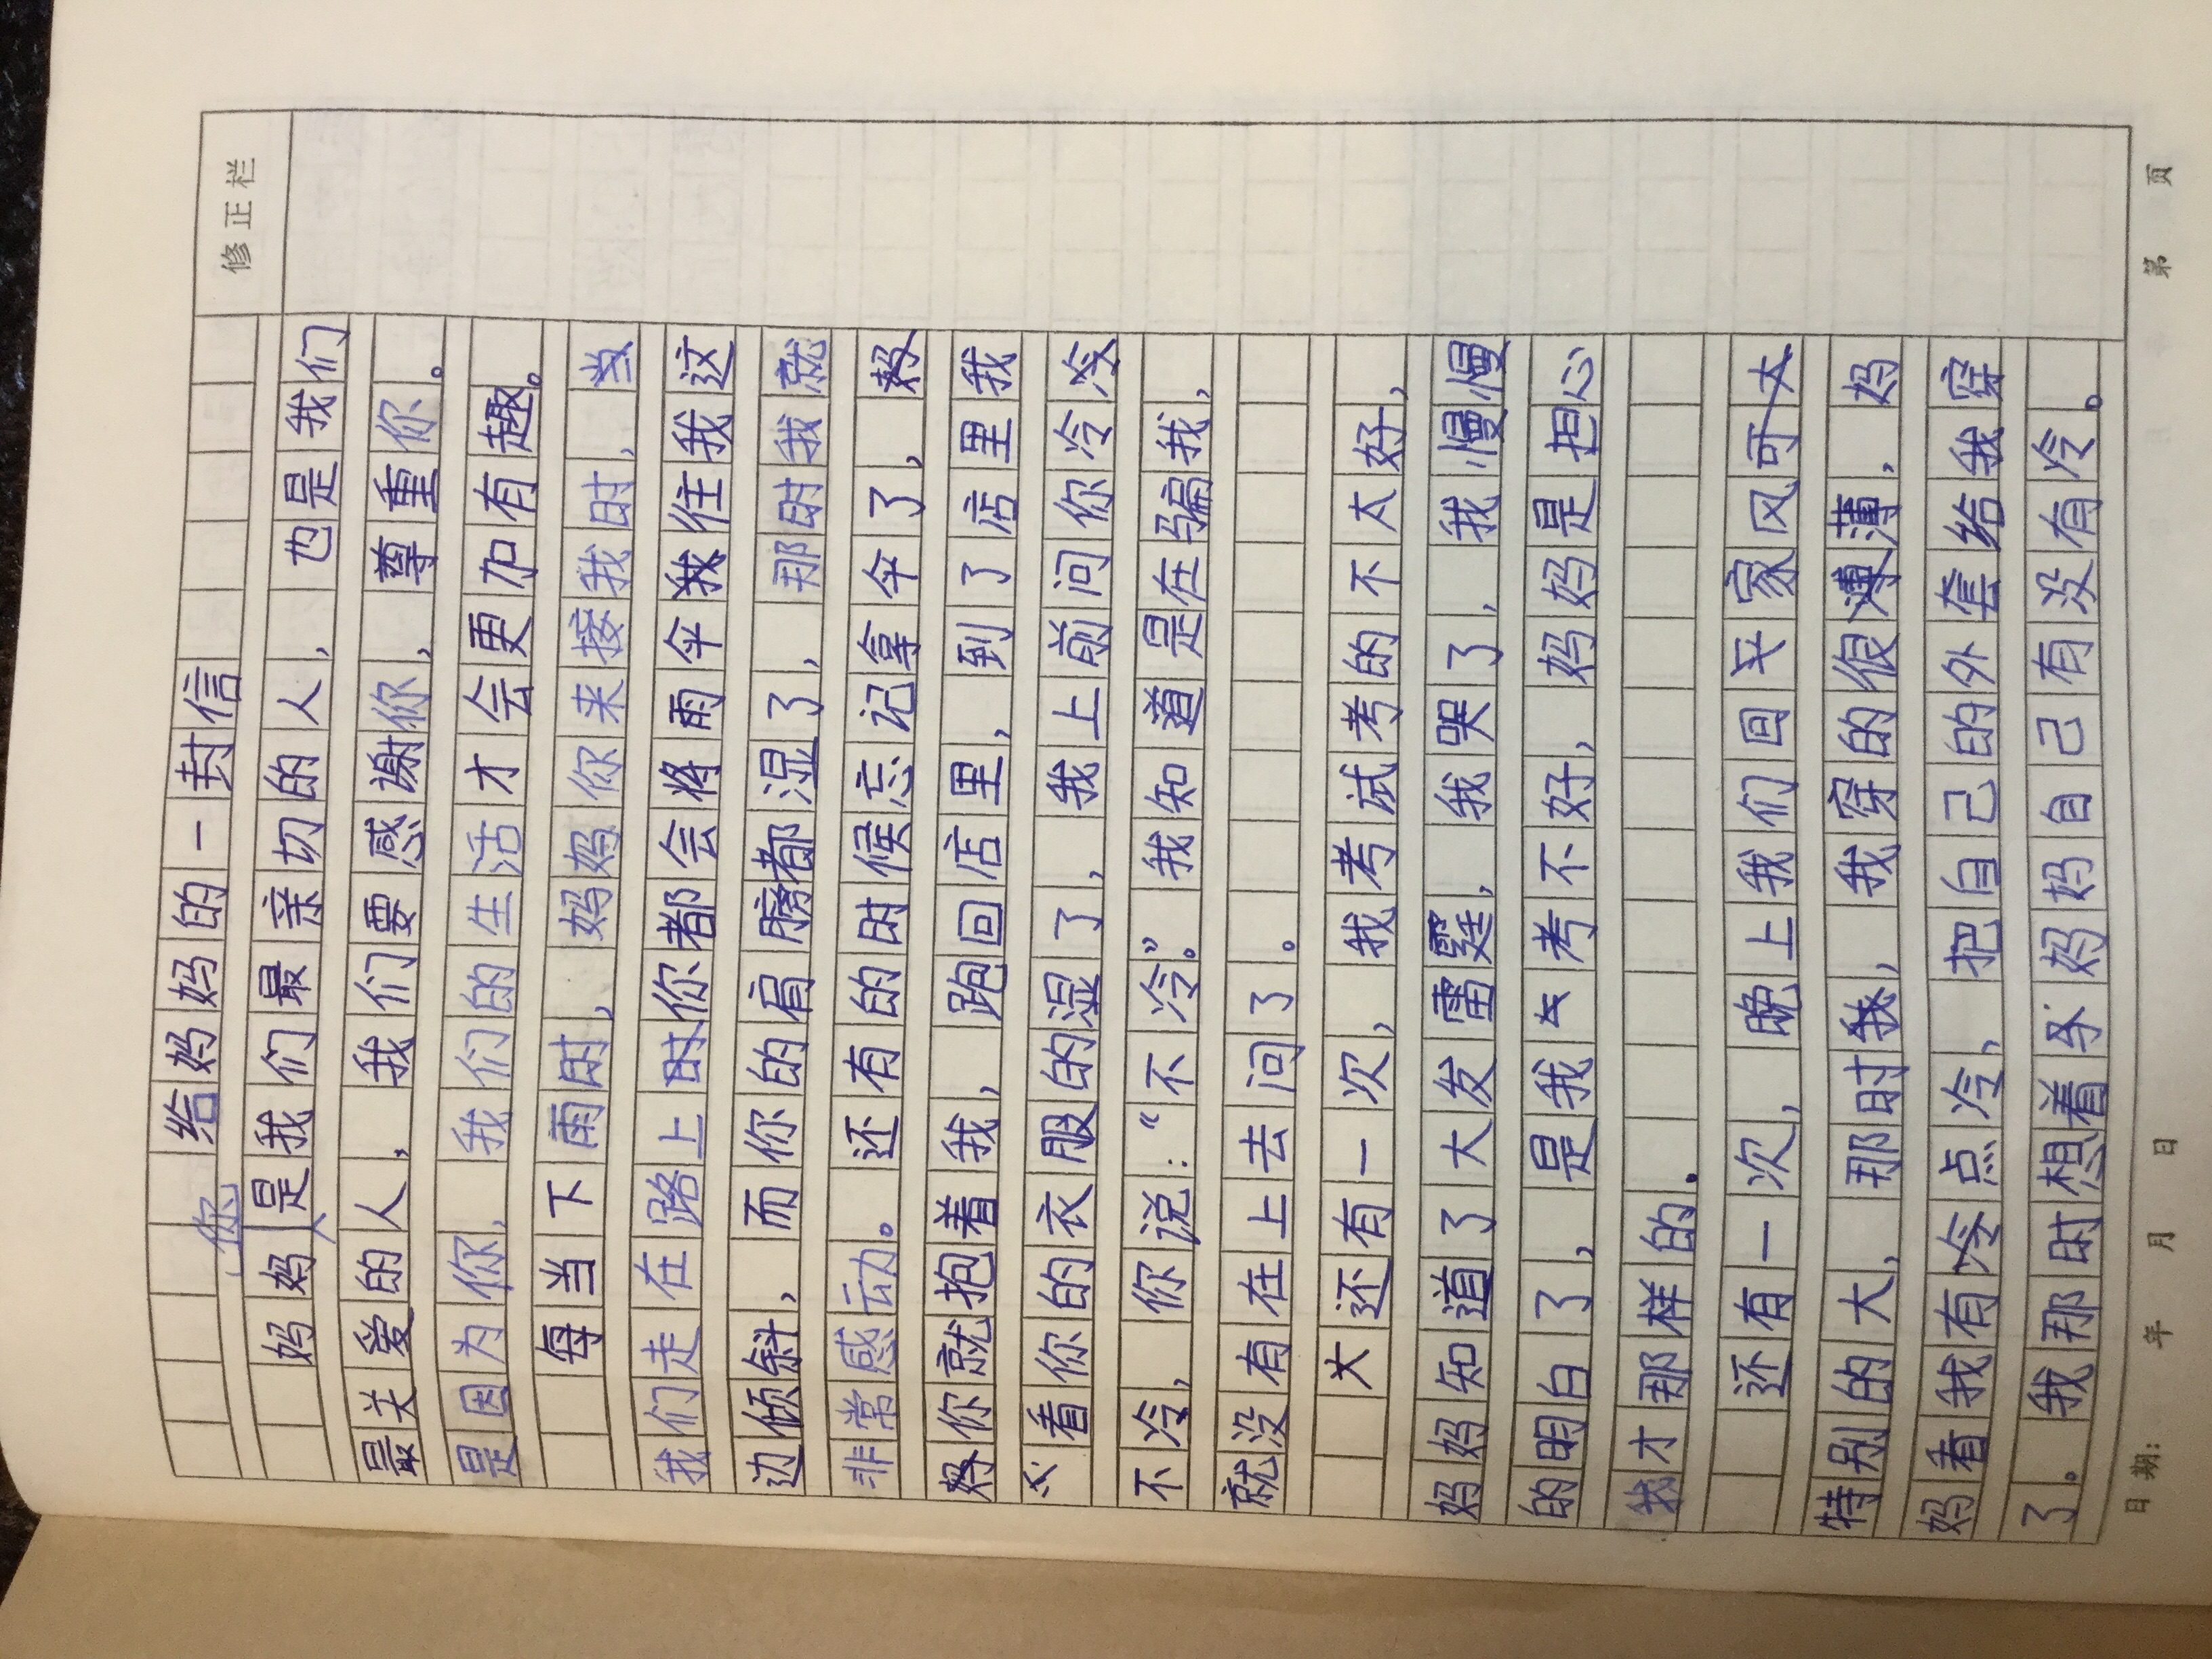 修正栏
给妈妈的一封信
妈妈你是我们最亲切的人，也是我们
最关爱的人，我们要感谢你，尊重你。
是因为你，我们的生活才会更加有趣。
每当下雨时，妈妈你来接我时，当
我们走在路上时你都会将雨伞我往我这
边倾斜，而你的肩膀都湿了，那时我就
非常感动。还有的时候忘记拿伞了，
你就抱着我，跑回店里，到了店里我
看你的衣服的湿了，我上前问你冷冷
不冷，你说：“不冷”。我知道是在骗我，
就没有在上去问了。
还有一次，我考试考的不太好，
妈妈知道了大发雷霆，我哭了，我慢慢
的明白了，是我考不好，妈妈是担心
我才那样的.
还有一次，晚上我们回家风可大
特别的大，那时我，我穿的很薄，妈
妈看我有冷点冷，把自己的外套给我穿
了。我那时想着妈妈自己有没有冷。
日期： 年 月 日 第 页